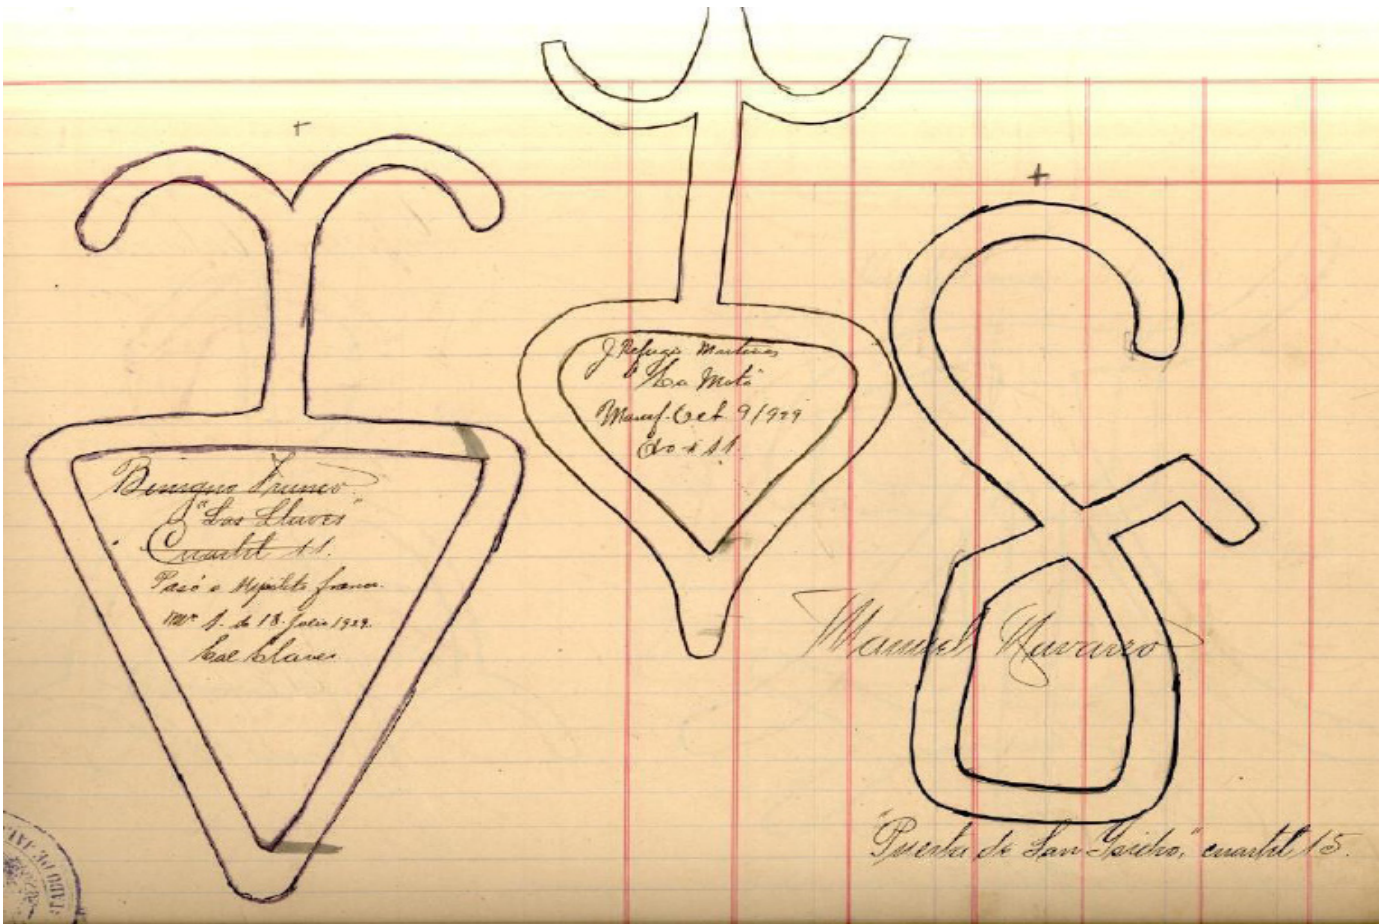 Benigno Franco
"Las Llaves"
Cuartel 11.
Pasó a Hipolito franco.
1º. de 18. Julio 1929.
Las Llaves
J Refugio Martinez
"La Mata"
Manif. Oct 9/929
11
Manuel Navarro
"Puerta de San" cuartel 15.